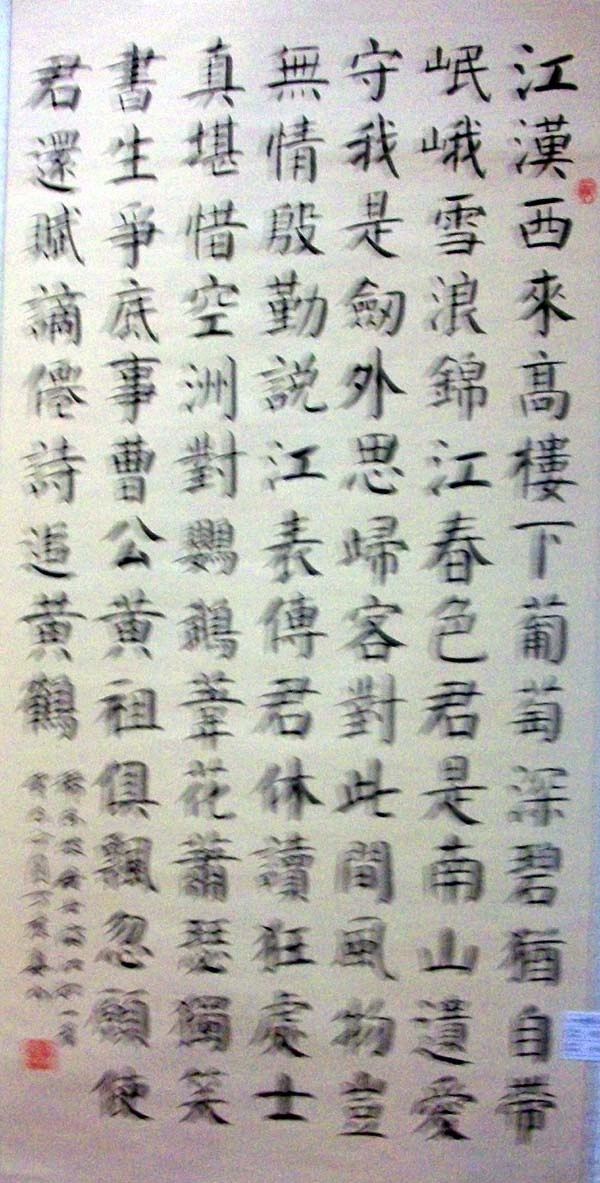 江漢西來高樓下葡萄深碧猶自帶
岷峨雪浪錦江春色君是南山遺愛
守我是劒外思歸客對此間風物豈
無情殷勤説江表傳君休讀狂處士
真堪惜空洲對鸚鵡葦花蕭瑟獨笑
書生爭底事曹公黃祖俱飄忽願使
君還賦謫僊詩追黃鶴